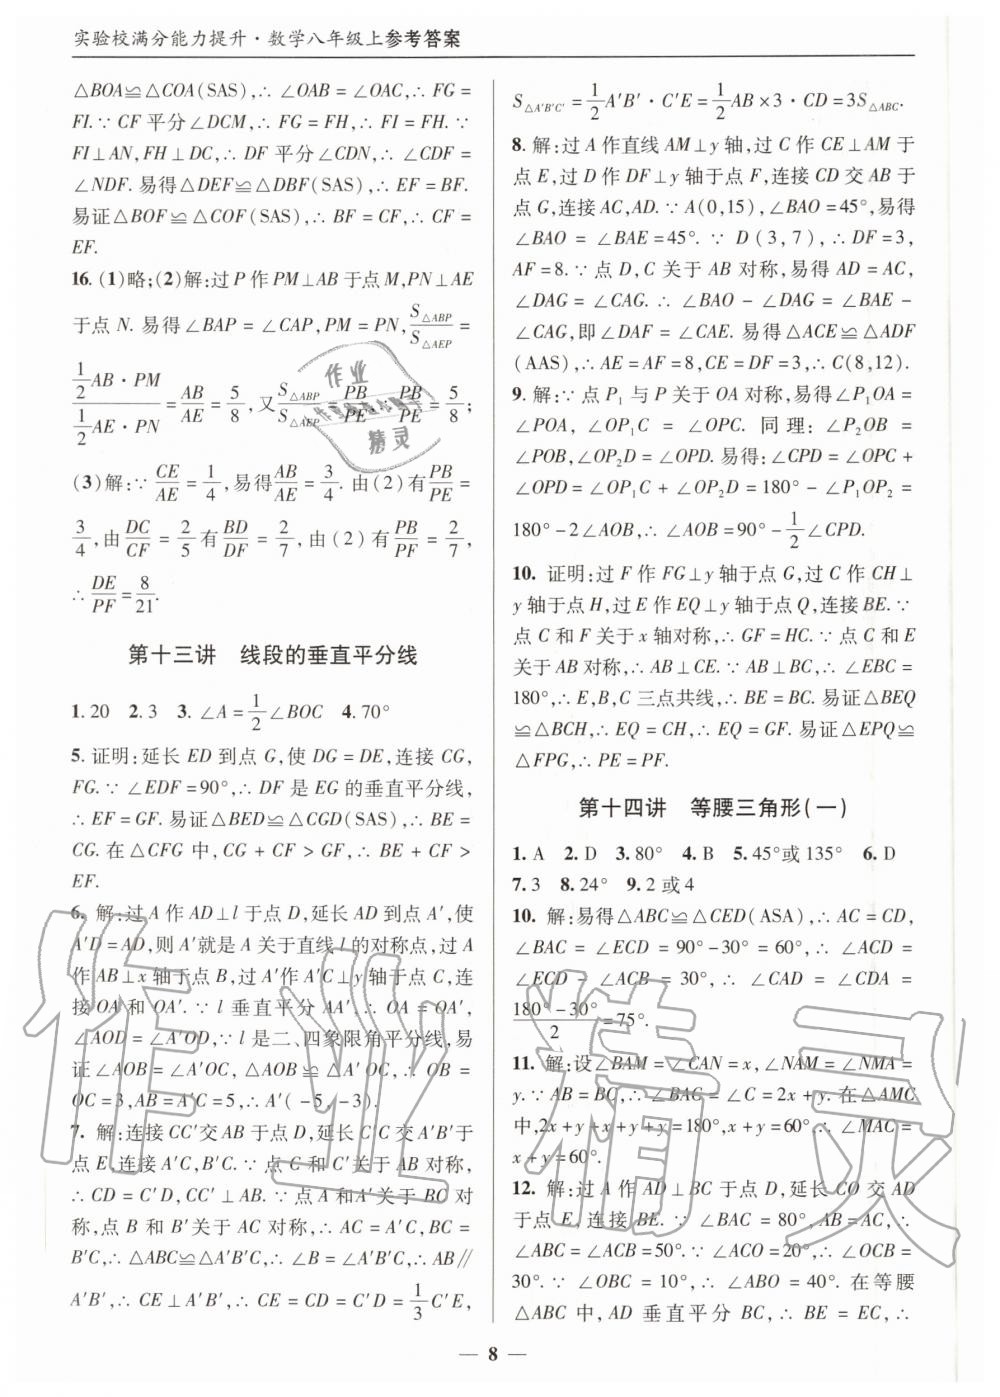 实验校满分能力提升·数学八年级上参考答案
△BOA≌△COA(SAS),∴ ∠OAB = ∠OAC,∴ FG =
FI.∵ CF 平分∠DCM,∴ FG = FH,∴ FI = FH. ∵
FI⊥AN,FH⊥DC,∴ DF 平分∠CDN,∴ ∠CDF =
∠NDF. 易得△DEF≌△DBF(SAS),∴ EF = BF.
易证△BOF≌△COF(SAS),∴ BF = CF,∴ CF =
EF.
16. (1)略;(2)解:过 P 作 PM⊥AB 于点 M,PN⊥AE
于点 N. 易得∠BAP = ∠CAP,PM = PN,S△ABP/S△AEP =
(1/2 AB·PM)/(1/2 AE·PN) = AB/AE = 5/8,又 S△ABP/S△AEP PB/PE = PB/PE = 5/8;
(3)解:∵ CE/AE = 1/4,易得 AB/AE = 3/4. 由(2)有 PB/PE =
3/4,由 DC/CF = 2/5 有 BD/DF = 2/7,由(2)有 PB/PF = 2/7,
∴ DE/PF = 8/21.
第十三讲 线段的垂直平分线
1. 20 2. 3 3. ∠A = 1/2 ∠BOC 4. 70°
5. 证明:延长 ED 到点 G,使 DG = DE,连接 CG,
FG. ∵ ∠EDF = 90°,∴ DF 是 EG 的垂直平分线,
∴ EF = GF. 易证△BED≌△CGD(SAS),∴ BE =
CG. 在△CFG 中,CG + CF > GF,∴ BE + CF >
EF.
6. 解:过 A 作 AD⊥l 于点 D,延长 AD 到点 A′,使
A′D = AD,则 A′就是 A 关于直线 l 的对称点,过 A
作 AB⊥x 轴于点 B,过 A′作 A′C⊥y 轴于点 C,连
接 OA 和 OA′. ∵ l 垂直平分 AA′,∴ OA = OA′,
∠AOD = ∠A′OD,∵ l 是二、四象限角平分线,易
证∠AOB = ∠A′OC,△AOB≌△A′OC,∴ OB =
OC = 3,AB = A′C = 5,∴ A′(-5,-3).
7. 解:连接 CC′交 AB 于点 D,延长 C′C 交 A′B′于
点 E,连接 A′C,B′C. ∵ 点 C 和 C′关于 AB 对称,
∴ CD = C′D,CC′⊥AB. ∵ 点 A 和 A′关于 BC 对
称,点 B 和 B′关于 AC 对称,∴ AC = A′C,BC =
B′C,∴ △ABC≌△A′B′C,∴ ∠B = ∠A′B′C,∴ AB∥
A′B′,∴ CE⊥A′B′,∴ CE = CD = C′D = 1/3 C′E,
S△A′B′C′ = 1/2 A′B′·C′E = 1/2 AB×3·CD = 3S△ABC.
8. 解:过 A 作直线 AM⊥y 轴,过 C 作 CE⊥AM 于
点 E,过 D 作 DF⊥y 轴于点 F,连接 CD 交 AB 于
点 G,连接 AC,AD. ∵ A(0,15),∠BAO = 45°,易得
∠BAO = ∠BAE = 45°. ∵ D(3,7),∴ DF = 3,
AF = 8. ∵ 点 D,C 关于 AB 对称,易得 AD = AC,
∠DAG = ∠CAG. ∴ ∠BAO - ∠DAG = ∠BAE -
∠CAG,即∠DAF = ∠CAE. 易得△ACE≌△ADF
(AAS),∴ AE = AF = 8,CE = DF = 3,∴ C(8,12).
9. 解:∵ 点 P₁ 与 P 关于 OA 对称,易得∠P₁OA =
∠POA,∠OP₁C = ∠OPC. 同理:∠P₂OB =
∠POB,∠OP₂D = ∠OPD. 易得:∠CPD = ∠OPC +
∠OPD = ∠OP₁C + ∠OP₂D = 180° - ∠P₁OP₂ =
180° - 2∠AOB,∴ ∠AOB = 90° - 1/2 ∠CPD.
10. 证明:过 F 作 FG⊥y 轴于点 G,过 C 作 CH⊥
y 轴于点 H,过 E 作 EQ⊥y 轴于点 Q,连接 BE. ∵
点 C 和 F 关于 x 轴对称,∴ GF = HC. ∵ 点 C 和 E
关于 AB 对称,∴ AB⊥CE. ∵ AB⊥BC,∴ ∠EBC =
180°,∴ E,B,C 三点共线,∴ BE = BC. 易证△BEQ
≌△BCH,∴ EQ = CH,∴ EQ = FG. 易证△EPQ≌
△FPG,∴ PE = PF.
第十四讲 等腰三角形(一)
1. A 2. D 3. 80° 4. B 5. 45°或 135° 6. D
7. 3 8. 24° 9. 2 或 4
10. 解:易得△ABC≌△CED(ASA),∴ AC = CD,
∠BAC = ∠ECD = 90° - 30° = 60°,∴ ∠ACD =
∠ECD - ∠ACB = 30°,∴ ∠CAD = ∠CDA =
(180° - 30°)/2 = 75°.
11. 解:设∠BAM = ∠CAN = x,∠NAM = ∠NMA =
y. ∵ AB = BC,∴ ∠BAC = ∠C = 2x + y. 在△AMC
中,2x + y + x + y + x + y = 180°,x + y = 60°,∴ ∠MAC =
x + y = 60°.
12. 解:过 A 作 AD⊥BC 于点 D,延长 CO 交 AD
于点 E,连接 BE. ∵ ∠BAC = 80°,AB = AC,∴
∠ABC = ∠ACB = 50°. ∵ ∠ACO = 20°,∴ ∠OCB =
30°. ∵ ∠OBC = 10°,∴ ∠ABO = 40°. 在等腰
△ABC 中,AD 垂直平分 BC,∴ BE = EC,∴
— 8 —
作业
精灵
作业精灵